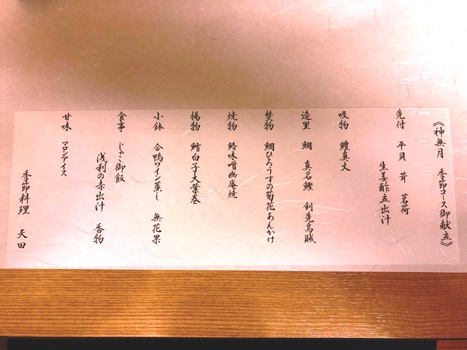 《神無月　季節コース御献立》
先付　平貝　茸　茗荷
生姜酢立出汁
吸物　鱧真丈
造里　鯛　真名鰹　剣先烏賊
焚物　鯛ひろうすの菊花あんかけ
焼物　味噌幽庵焼
揚物　鱈白子大葉巻
小鉢　合鴨ワイン蒸し　無花果
食事　じゃこ御飯
浅利の赤出汁　香物
甘味　マロンアイス
季節料理　天田